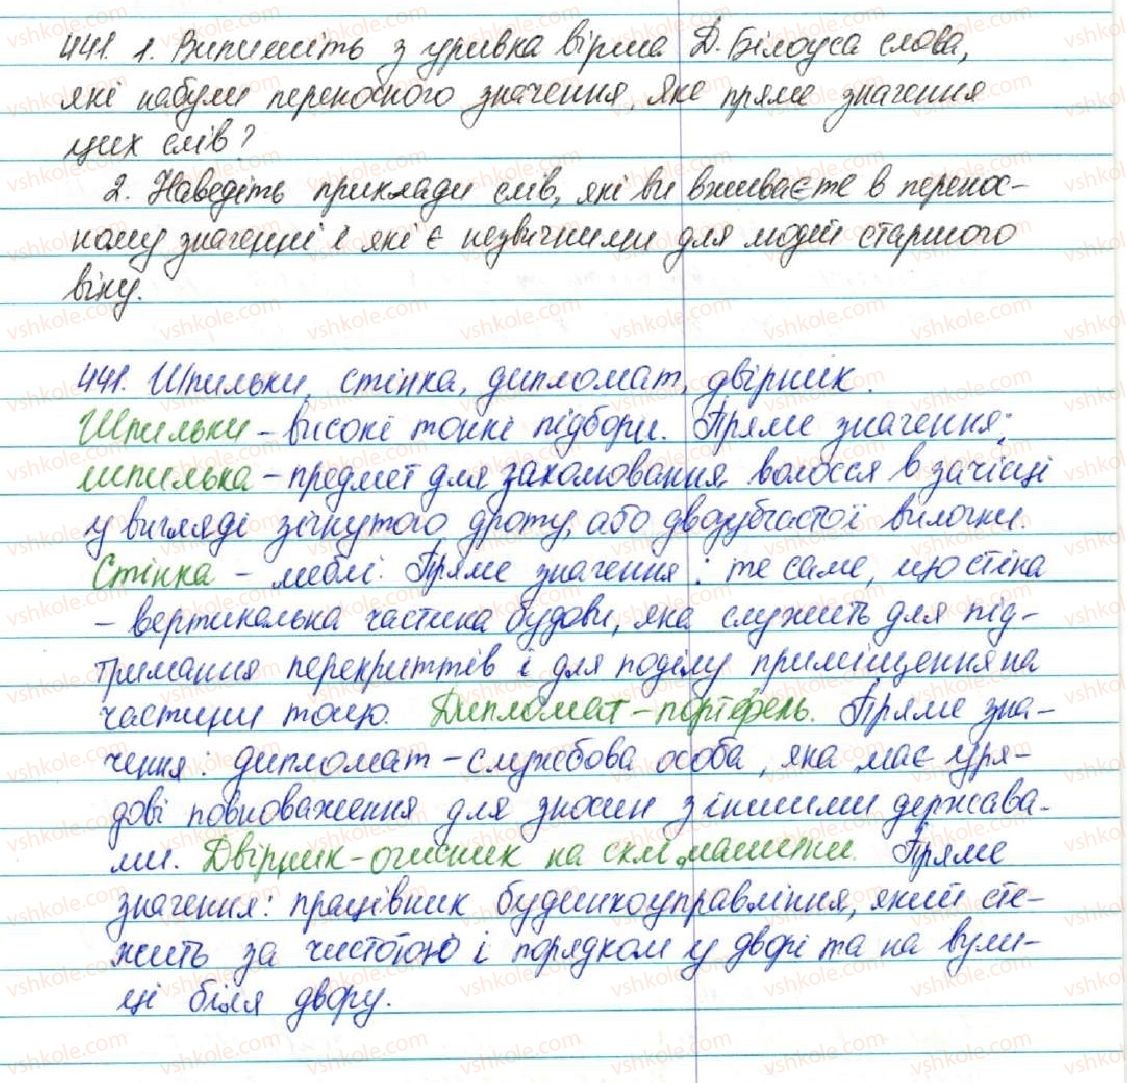 441. 1. Випишіть з уривка вірша Д. Білоуса слова,
які набули переносного значення. Яке пряме значення
цих слів?
2. Наведіть приклади слів, які ви вживаєте в перенос-
ному значенні і які є незвичними для людей старшого
віку.
441. Шпильки, стінка, дипломат, двірник.
Шпильки – високі тонкі підбори. Пряме значення:
шпилька – предмет для заколювання волосся в зачісці
у вигляді зігнутого дроту, або двозубчастої вилочки.
Стінка – меблі. Пряме значення: те саме, що стіна
– вертикальна частина будови, яка служить для під-
тримання перекриттів і для поділу приміщення на
частини тощо. Дипломат – портфель. Пряме зна-
чення: дипломат – службова особа, яка має уря-
дові повноваження для зносин з іншими держава-
ми. Двірник – очисник на склі машини. Пряме
значення: працівник будинкоуправління, який сте-
жить за чистотою і порядком у дворі та на вули-
ці біля двору.